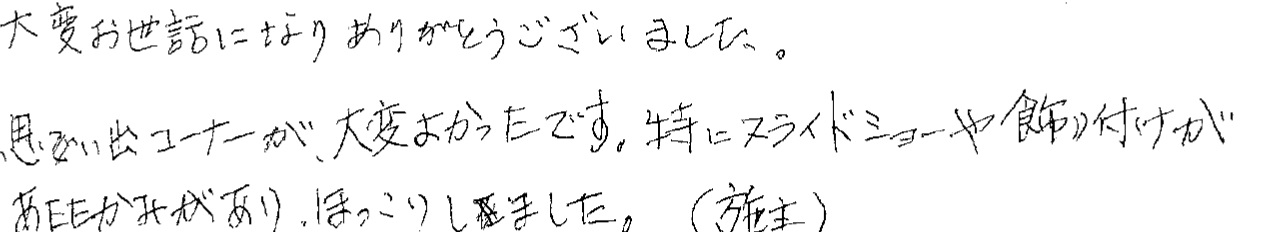 大変お世話になりありがとうございました。
思い出コーナーが、大変よかったです。特にスライドショーや飾り付けが
あたたかみがあり、ほっこりしました。(施主)